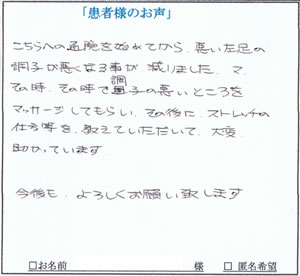 「患者様のお声」
こちらへの通院を始めてから、悪い左足の
調子が悪くなる事が減りました。マ
その時、その時で調子の悪いところを
マッサージしてもらい、その後に、ストレッチの
仕方等を教えていただいて、大変
助かっています。
今後も、よろしくお願い致します
□お名前 様 □ 匿名希望